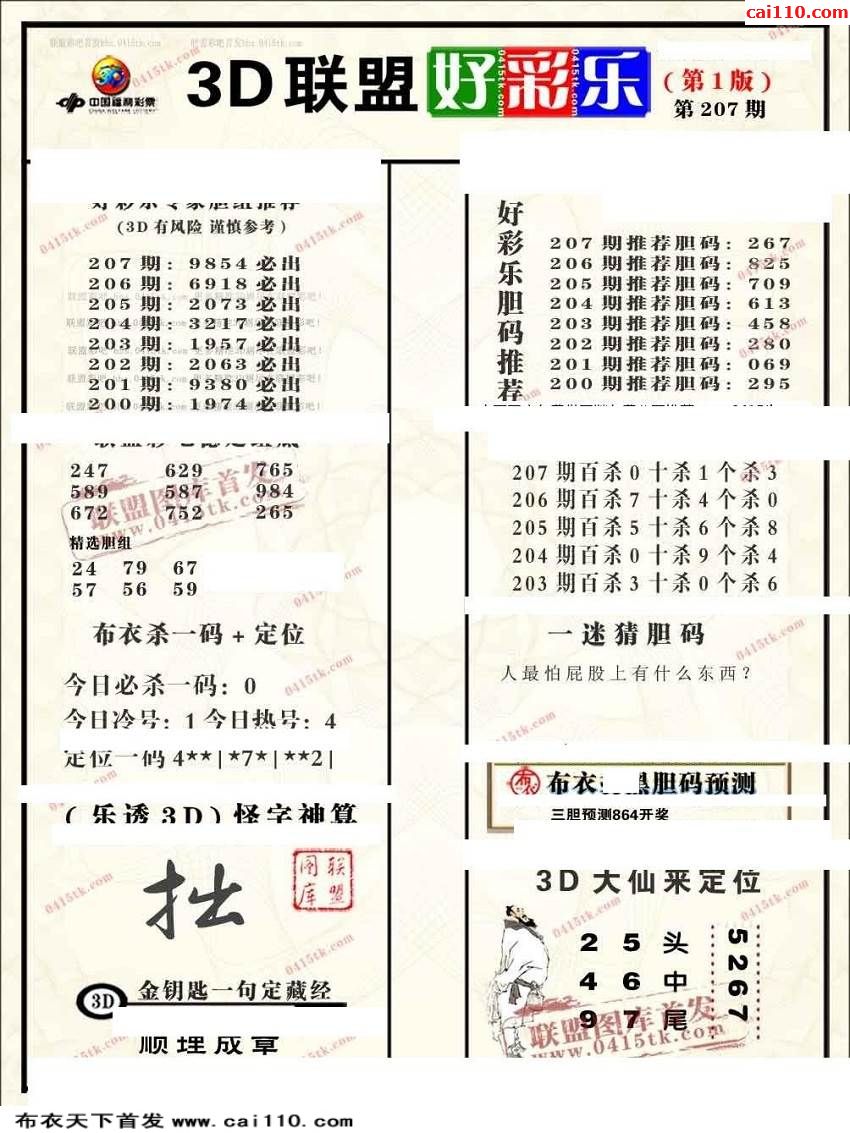 cai110.com
中国福利彩票
CHINA WELFARE LOTTERY
3D联盟好彩乐
0415tk.com
(第1版)
第207期
好彩乐专家胆组推荐
(3D有风险 谨慎参考)
207期: 9854必出
206期: 6918必出
205期: 2073必出
204期: 3217必出
203期: 1957必出
202期: 2063必出
201期: 9380必出
200期: 1974必出
247 629 765
589 587 984
672 752 265
精选胆组
24 79 67
57 56 59
联盟图库首发
www.0415tk.com
布衣杀一码+定位
今日必杀一码: 0
今日冷号: 1 今日热号: 4
定位一码4**|*7*|**2|
(乐透3D)怪字神算
拙
联盟图库
3D 金钥匙一句定藏经
顺理成章
好彩乐胆码推荐
207期推荐胆码: 267
206期推荐胆码: 825
205期推荐胆码: 709
204期推荐胆码: 613
203期推荐胆码: 458
202期推荐胆码: 280
201期推荐胆码: 069
200期推荐胆码: 295
207期百杀0十杀1个杀3
206期百杀7十杀4个杀0
205期百杀5十杀6个杀8
204期百杀0十杀9个杀4
203期百杀3十杀0个杀6
一迷猜胆码
人最怕屁股上有什么东西?
布 布衣 黑胆码预测
三胆预测864开奖
3D大仙来定位
2 5 头
4 6 中
9 7 尾
5267
联盟图库首发
www.0415tk.com
布衣天下首发 www.cai110.com